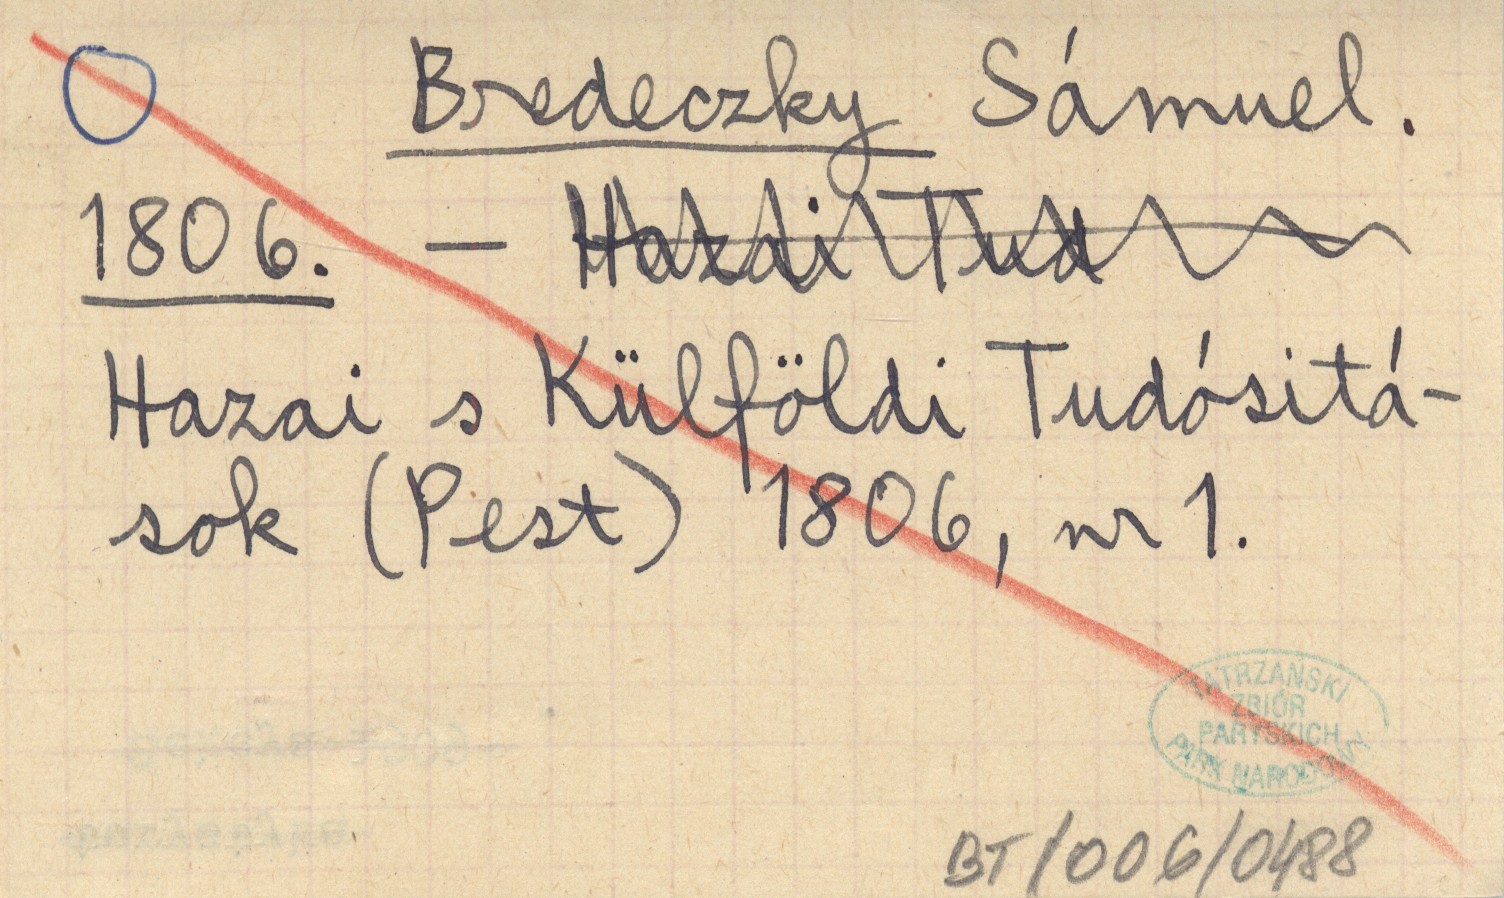 Bredeczky Sámuel.
1806. — Hazdi Tud
Hazai s Külföldi Tudósitá-
sok (Pest) 1806, nr 1.
TATRZAŃSKI
ZBIÓR
PARYSKICH
PARK NARODOWY
BT/006/0488